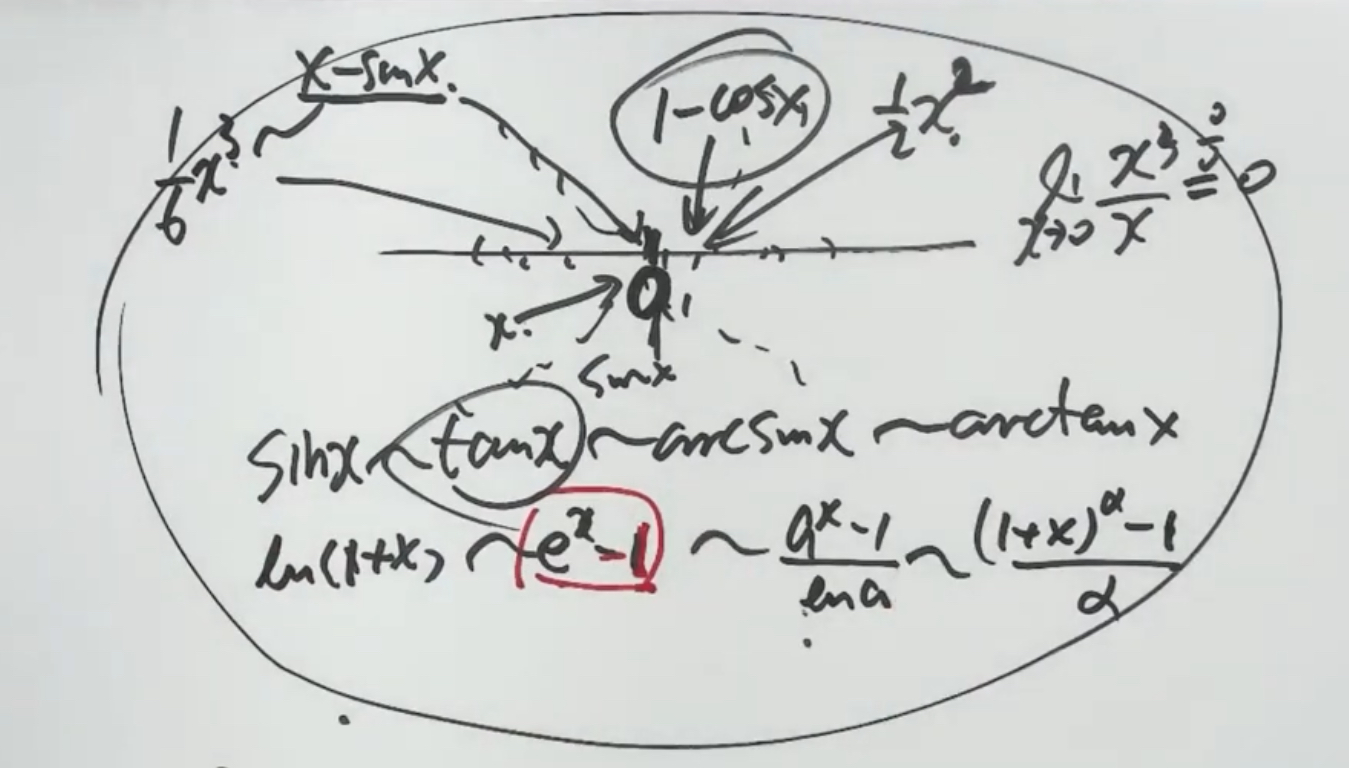 x-sinx.
1-cosx
1/2 x².
1/6 x³.
lim x→0 x³/x = 0/0 0
0
x.
sinx
sinx ~ tanx ~ arcsinx ~ arctanx
ln(1+x) ~ eˣ-1 ~ (aˣ-1)/lna ~ ((1+x)^α-1)/α